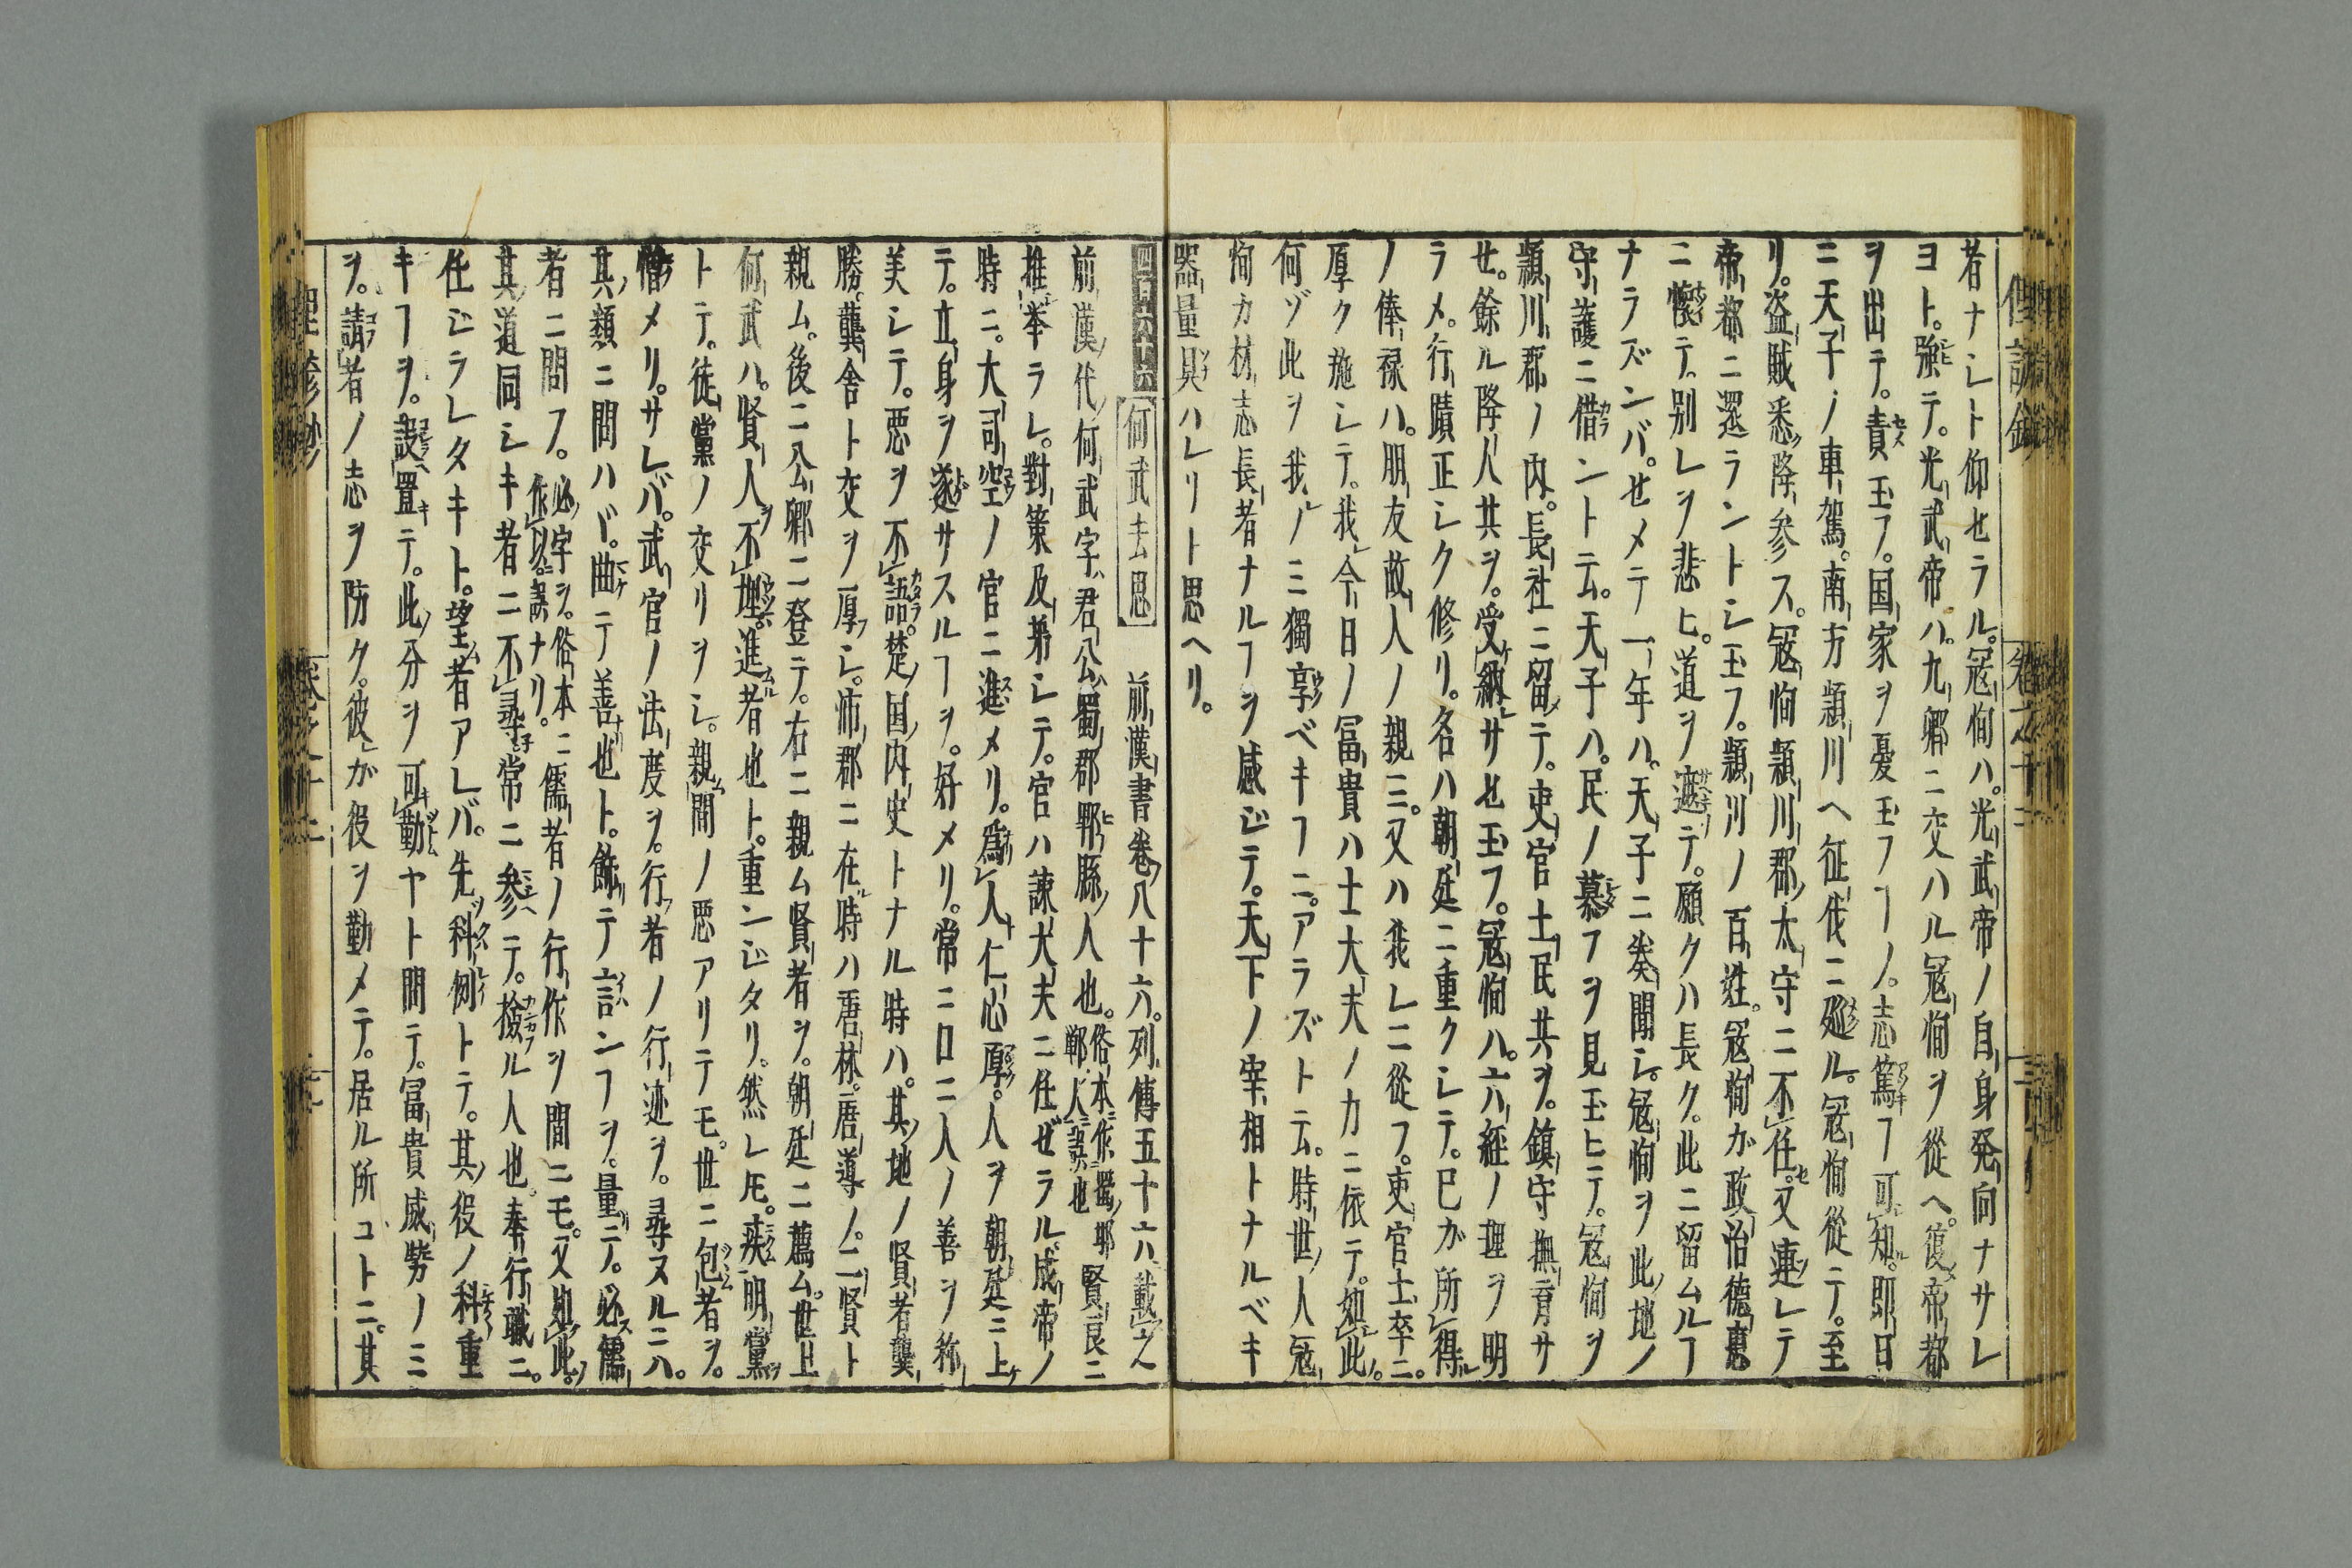 者ナシト仰セラル。冦恂ハ。光武帝ノ自身発向ナサレ
ヨト。強テ。光武帝ハ。九卿ニ交ハル冦恂ヲ從ヘ。復帝都
ヲ出テ。責玉フ。国家ヲ憂玉フヿノ。志篤ヿ可知。即日
ニ天子ノ車駕。南方潁川ヘ征伐ニ廵ル。冦恂從ニテ。至
リ。盗賊悉降参ス。冦恂潁川郡太守ニ不任。又連レテ
帝都ニ還ラントシ玉フ。潁川ノ百姓。冦恂ガ政治德惠
ニ懷テ。別レヲ悲ヒ。道ヲ遮テ。願クハ長ク。此ニ留ムルヿ
ナラズンバ。セメテ一年ハ。天子ニ奏聞シ。冦恂ヲ此地ノ
守護ニ借ントテ云。天子ハ。民ノ慕フヲ見玉ヒテ。冦恂ヲ
潁川郡ノ内。長社ニ留テ。吏官土民共ヲ。鎮守撫育サ
セ。餘ル降人其ヲ。受納サセ玉フ。冦恂ハ。六経ノ理ヲ明
ラメ。行蹟正シク修リ。名ハ朝廷ニ重クシテ。巳ガ所得
ノ俸禄ハ。朋友故人ノ親ミ。又ハ我レニ從フ。吏官士卒ニ。
厚ク施シテ。我今日ノ冨貴ハ士大夫ノカニ依テ。如此。
何ヅ此ヲ我ノミ獨享ベキヿニ。アラズト云。時世ノ人冦
恂カ材志長者ナルヿヲ感ジテ。天下ノ宰相トナルベキ
器量具ハレリト思ヘリ。
何武去思 前漢書卷八十六。列傳五十六ハ載之
前漢代何武字君公。蜀郡郫縣人也。俗本作蜀耶鄲人誤也賢良ニ
推举ラレ。對策及第シテ。官ハ諫大夫ニ任ゼラル。成帝ノ
時ニ。大司空ノ官ニ進メリ。爲人仁心厚。人ヲ朝廷ニ上
テ。立身ヲ遂サスルヿヲ。好メリ。常ニ口ニ人ノ善ヲ称
美シテ。悪ヲ不語。楚国内史トナル時ハ。其地ノ賢者龔
勝。龔舍ト交ヲ厚シ。沛郡ニ在時ハ唐林。唐導ノ。二賢ト
親ム。後ニ公卿ニ登テ。右ニ親ム賢者ヲ。朝廷ニ薦ム。世上
何武ハ。賢人不埋。進者也ト。重ンジタリ。然レモ。疾朋黨
トテ。徒黨ノ交リヲシ。親間ノ悪アリテモ。世ニ包者ヲ。
憎メリ。サレバ。武官ノ法度ヲ。行者ノ行迹ヲ。尋ヌルニハ。
其類ニ問ハヾ。曲テ善也ト。餝テ言ンヿヲ。量ニノ。必儒
者ニ問フ。必字ヲ。俗本作以。誤ナリ。ニ儒者ノ行作ヲ問ニモ。又如此。
其道同シキ者ニ不尋常ニ參テ。檢ル人也。奉行職ニ。
任ジラレタキト。望者アレバ。先科例トテ。其役ノ科重
キヿヲ。設置テ。此分ヲ可勤ヤト問テ。冨貴威勢ノミ
ヲ。請者ノ志ヲ防ク。彼ガ役ヲ勤メテ。居ル所ゴトニ。其